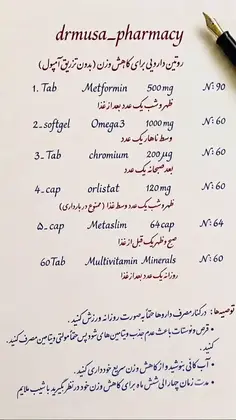 drmusa_pharmacy
روتین دارویی برای کاهش وزن (بدون تزریق آمپول)
1. Tab Metformin 500mg N:90
ظهر و شب یک عدد بعد از غذا
2_softgel Omega3 1000mg N:60
وسط ناهار یک عدد
3_Tab chromium 200µg N:60
بعد صبحانه یک عدد
4_cap orlistat 120mg N:60
ظهر و شب یک عدد وسط غذا (ممنوع در بارداری)
۵_cap Metaslim 64cap N:64
صبح و ظهر یک قبل از غذا
60Tab Multivitamin Minerals N:60
روزانه یک عدد بعد از غذا
توصیه‌ها: در کنار مصرف داروها حتما به صورت روزانه ورزش کنید.
• قرص فوستات باعث عدم جذب ویتامین های شود پس حتما مولتی ویتامین مصرف کنید.
کنید.
• آب کافی بنوشید و از کاهش وزن سریع خودداری کنید.
• مدت زمان چهار الی شش ماه برای کاهش وزن خود در نظر بگیرید با شیب ملایم